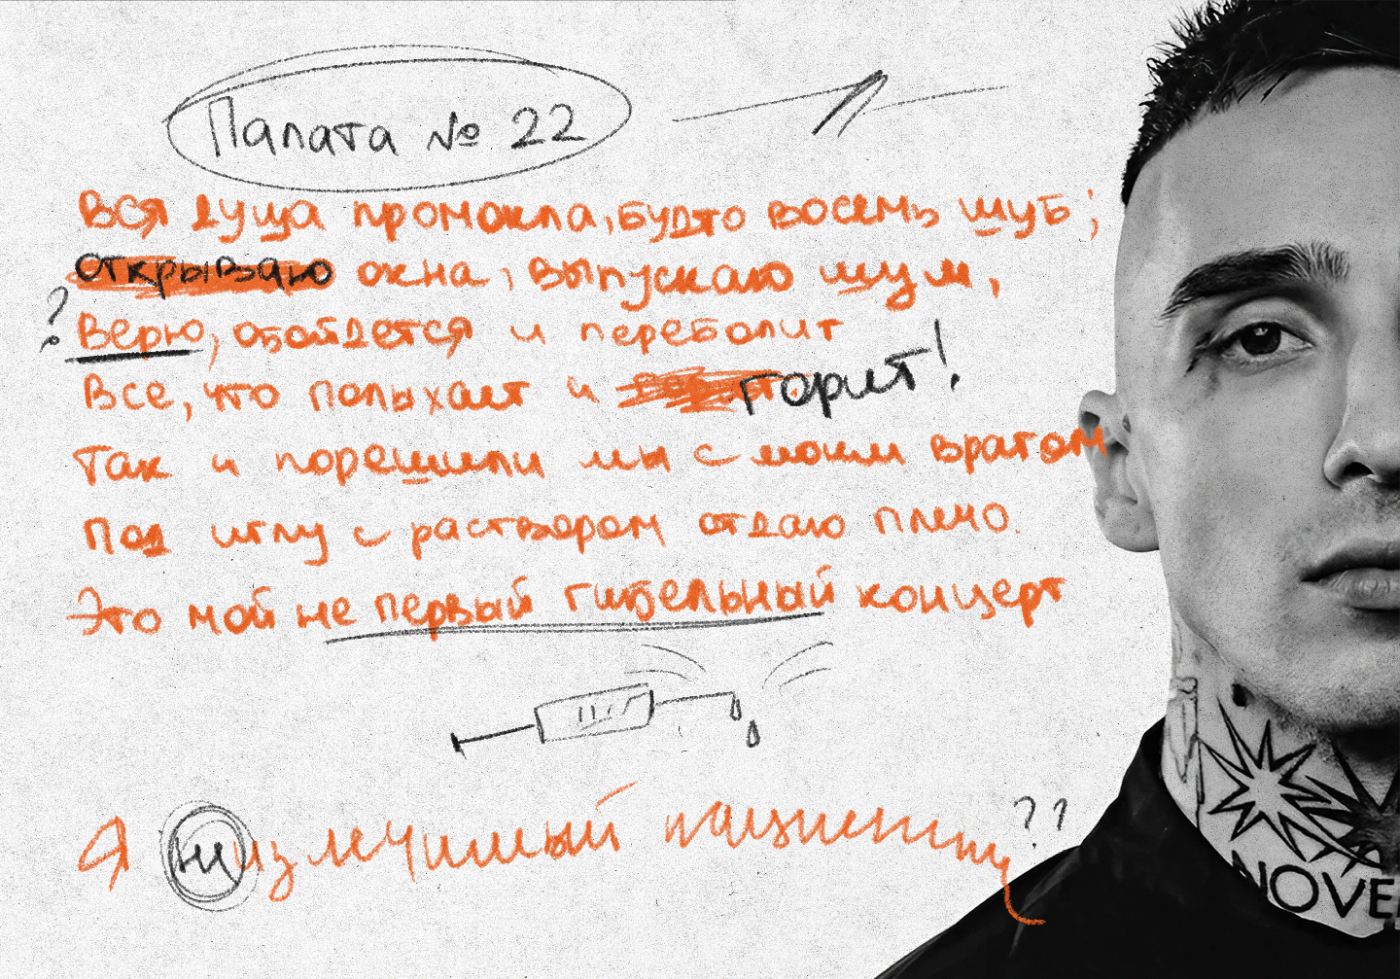 Палата № 22
Вся душа промокла, будто восемь шуб;
открываю окна, выпускаю шум,
? Верю, обойдется и переболит
Все, что полыхает и горит!
Так и порешили мы с моим врагом
Под иглу с раствором отдаю плечо.
Это мой не первый гибельный концерт
Я неизлечимый пациент ??
NOVE